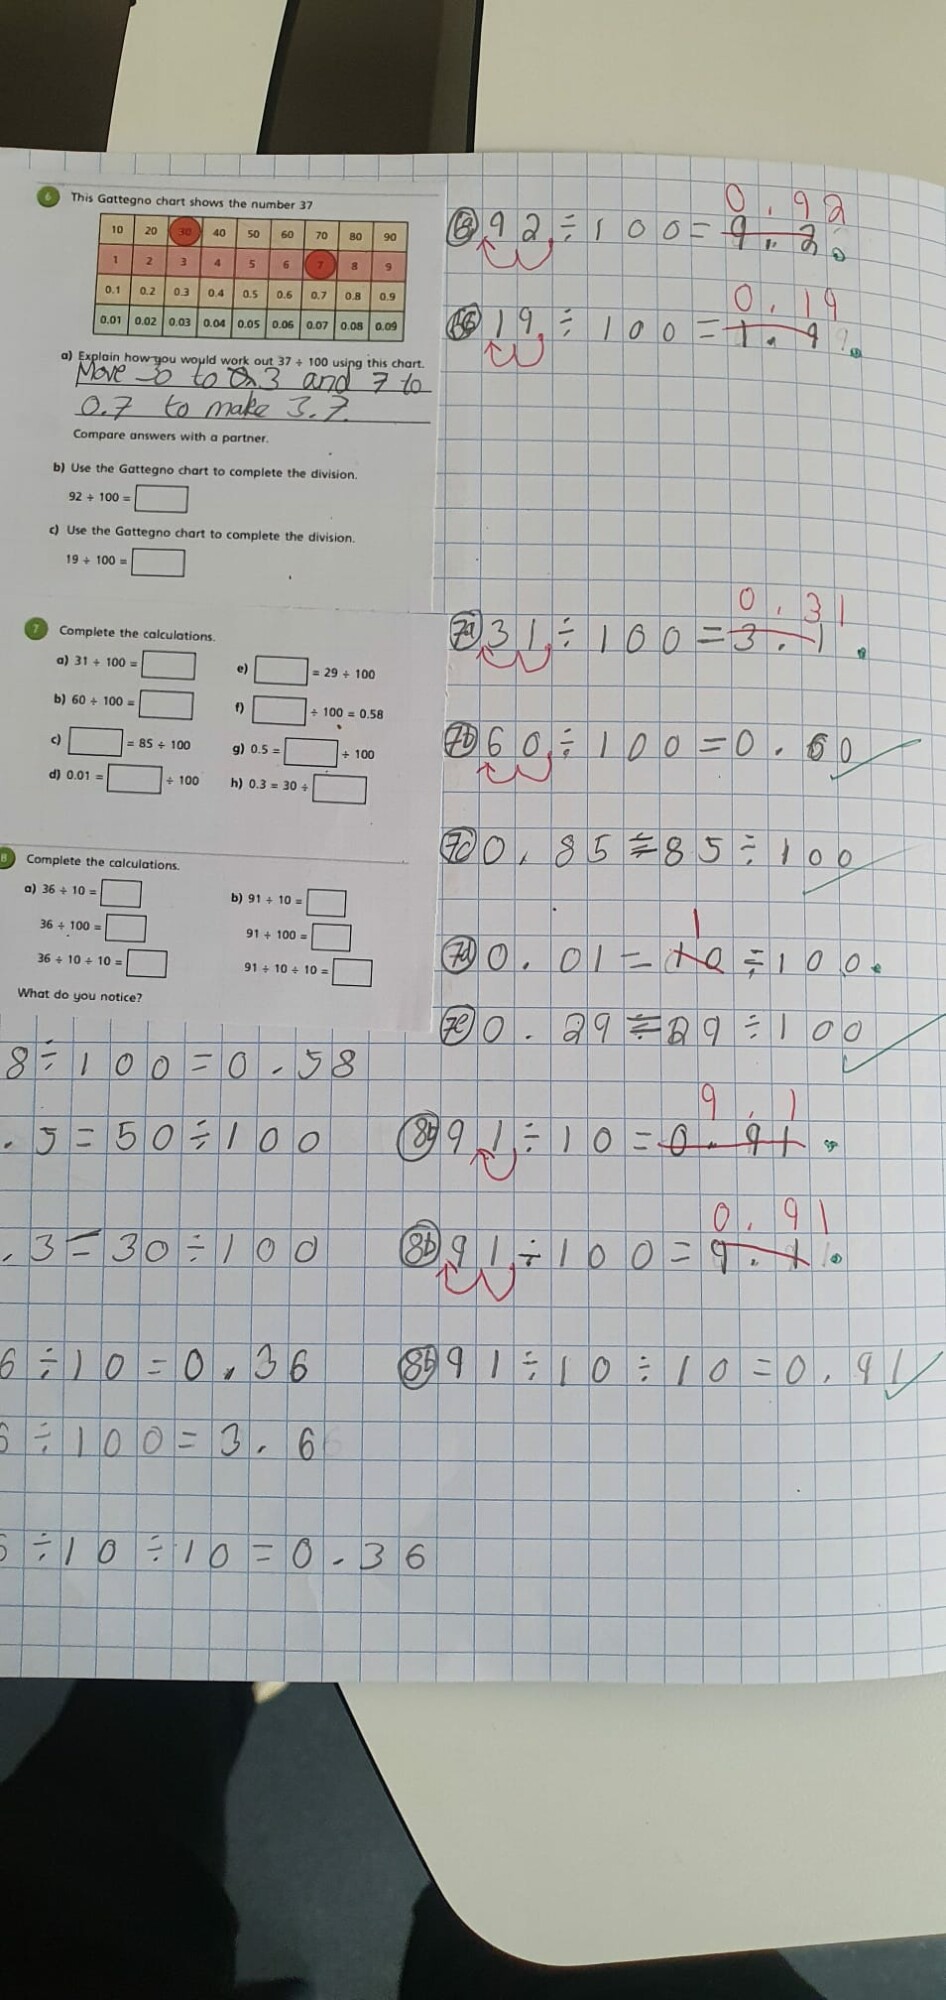 6 This Gattegno chart shows the number 37
10 20 30 40 50 60 70 80 90
1 2 3 4 5 6 7 8 9
0.1 0.2 0.3 0.4 0.5 0.6 0.7 0.8 0.9
0.01 0.02 0.03 0.04 0.05 0.06 0.07 0.08 0.09
a) Explain how you would work out 37 ÷ 100 using this chart.
Move 30 to 0.3 and 7 to
0.7 to make 3.7
Compare answers with a partner.
b) Use the Gattegno chart to complete the division.
92 ÷ 100 =
c) Use the Gattegno chart to complete the division.
19 ÷ 100 =
7 Complete the calculations.
a) 31 ÷ 100 =
e) = 29 ÷ 100
b) 60 ÷ 100 =
f) ÷ 100 = 0.58
c) = 85 ÷ 100
g) 0.5 = ÷ 100
d) 0.01 = ÷ 100
h) 0.3 = 30 ÷
8 Complete the calculations.
a) 36 ÷ 10 =
b) 91 ÷ 10 =
36 ÷ 100 =
91 ÷ 100 =
36 ÷ 10 ÷ 10 =
91 ÷ 10 ÷ 10 =
What do you notice?
0.92
92 ÷ 100 = 9.2
0.19
19 ÷ 100 = 1.9
0.31
7a 31 ÷ 100 = 3.1
7b 60 ÷ 100 = 0.60
7c 0.85 = 85 ÷ 100
1
7d 0.01 = 10 ÷ 100
7e 0.29 = 29 ÷ 100
8 ÷ 100 = 0.58
.5 = 50 ÷ 100
.3 = 30 ÷ 100
6 ÷ 10 = 0.36
6 ÷ 100 = 3.6
6 ÷ 10 ÷ 10 = 0.36
9.1
8b 91 ÷ 10 = 0.91
0.91
8b 91 ÷ 100 = 9.1
8b 91 ÷ 10 ÷ 10 = 0.91